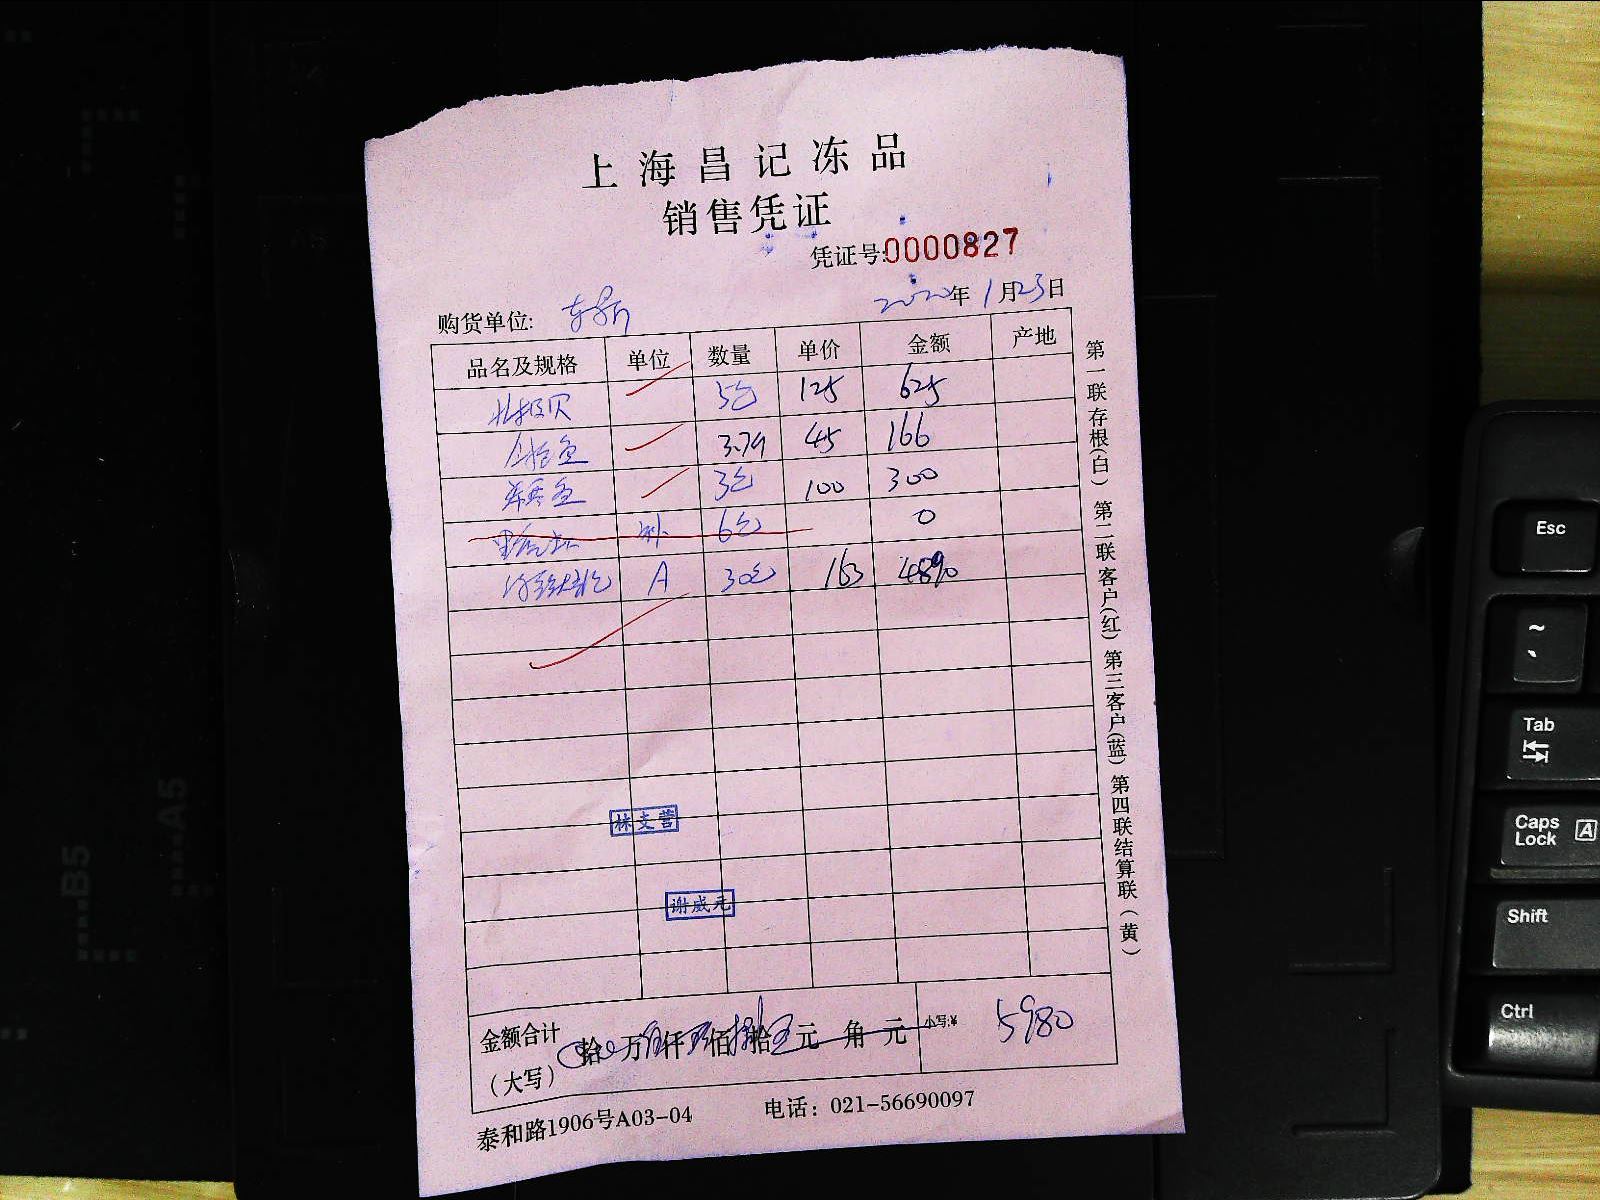 上海昌记冻品
销售凭证
凭证号:0000827
购货单位: 2020年1月23日
品名及规格 单位 数量 单价 金额 产地
北极贝 5包 125 625
3.79 45 166
3包 100 300
补 6包 0
A 30包 163 4890
林支营
谢威元
金额合计 拾 万 仟 佰 拾 元 角 元 小写:¥ 5980
(大写)
泰和路1906号A03-04 电话: 021-56690097
第一联存根(白) 第二联客户(红) 第三客户(蓝) 第四联结算联(黄)
B5
A5
Esc
~
Tab
Caps Lock A
Shift
Ctrl